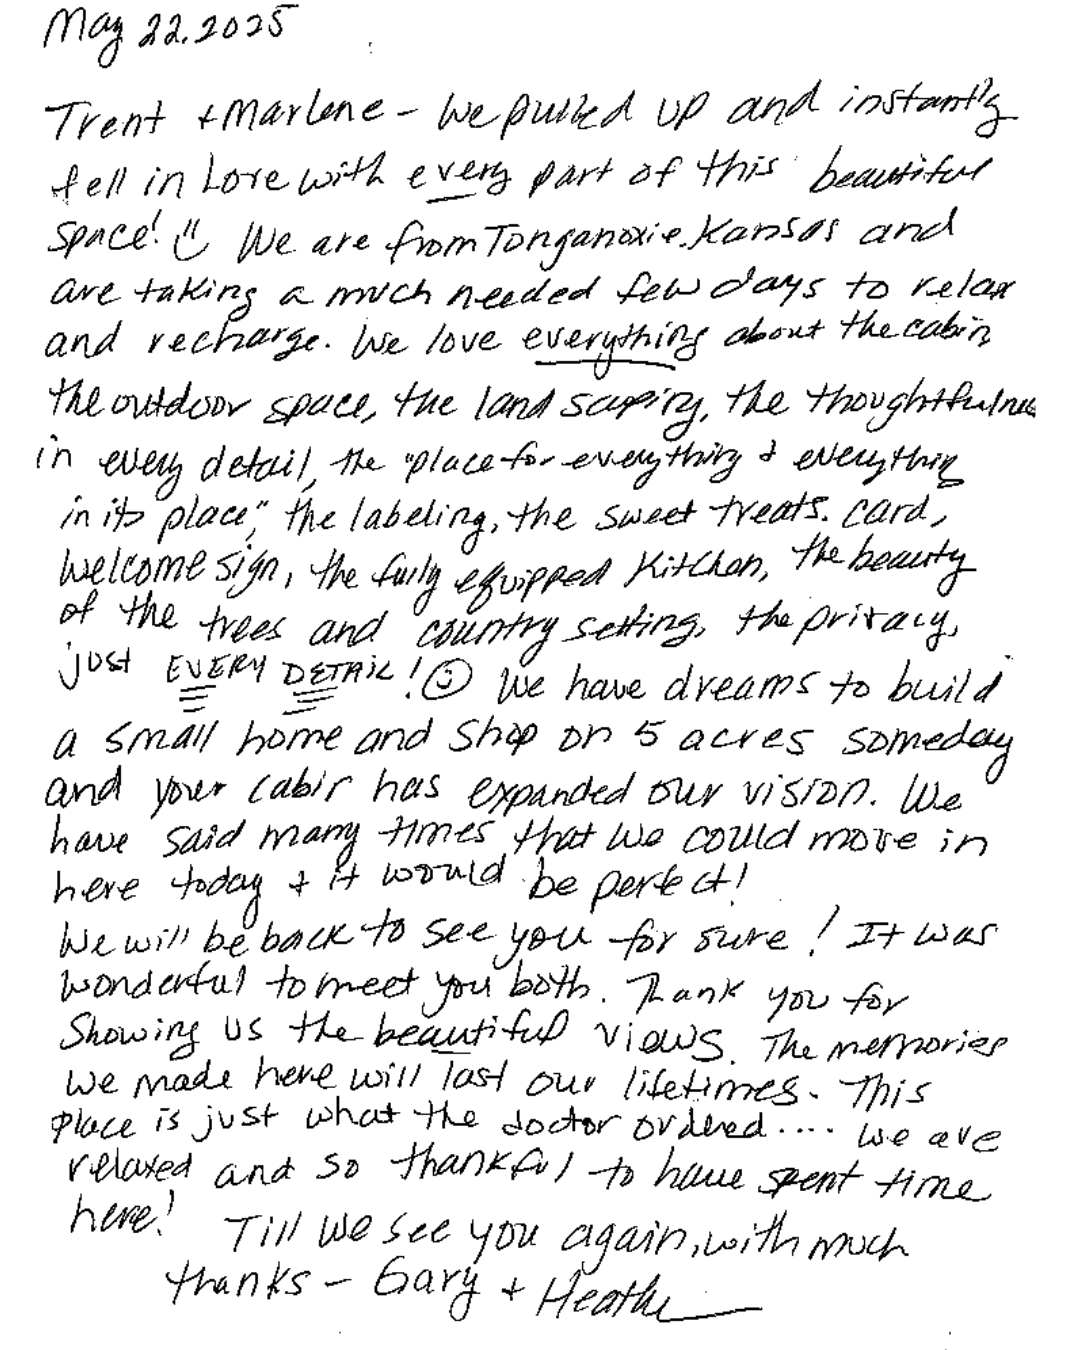 May 22.2025
Trent + Marlene - We pulled up and instantly
fell in Love with every part of this beautiful
space! We are from Tonganoxie, Kansas and
are taking a much needed few days to relax
and recharge. We love everything about the cabin,
the outdoor space, the land scaping, the thoughtfulness
in every detail, the "place for everything & everything
in its place", the labeling, the sweet treats. card,
welcome sign, the fully equipped Kitchen, the beauty
of the trees and country setting, the privacy,
just EVERY DETAIL! ☺ We have dreams to build
a small home and Shop on 5 acres someday
and your cabin has expanded our vision. We
have said many times that we could move in
here today + it would be perfect!
We will be back to see you for sure! It was
wonderful to meet you both. Thank you for
Showing us the beautiful views. The memories
we made here will last our lifetimes. This
place is just what the doctor ordered.... we are
relaxed and so thankful to have spent time
here! Till we see you again, with much
thanks - Gary + Heather